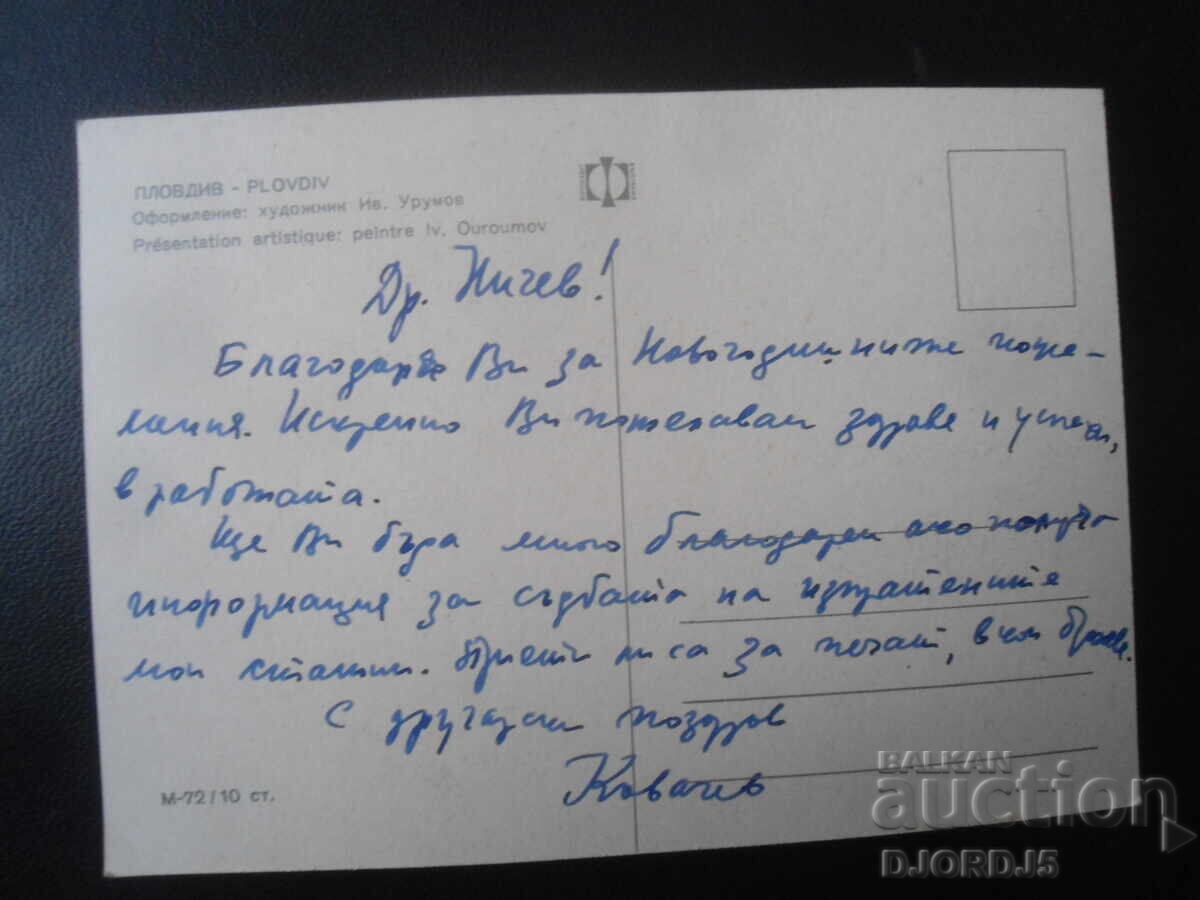 ПЛОВДИВ - PLOVDIV
Оформление: художник Ив. Урумов
Présentation artistique: peintre Iv. Ouroumov
Др. Ничев!
Благодаря Ви за Новогодишните поже-
лания. Искрено Ви пожелавам здраве и успехи,
в работата.
Ще Ви бъда много благодарен ако получа
информация за съдбата на изпратените
мои статии. Приети ли са за печат, в кои броеве.
С другарски поздрав
Ковачев
М-72/10 ст.
BALKAN
auction
DJORDJ5